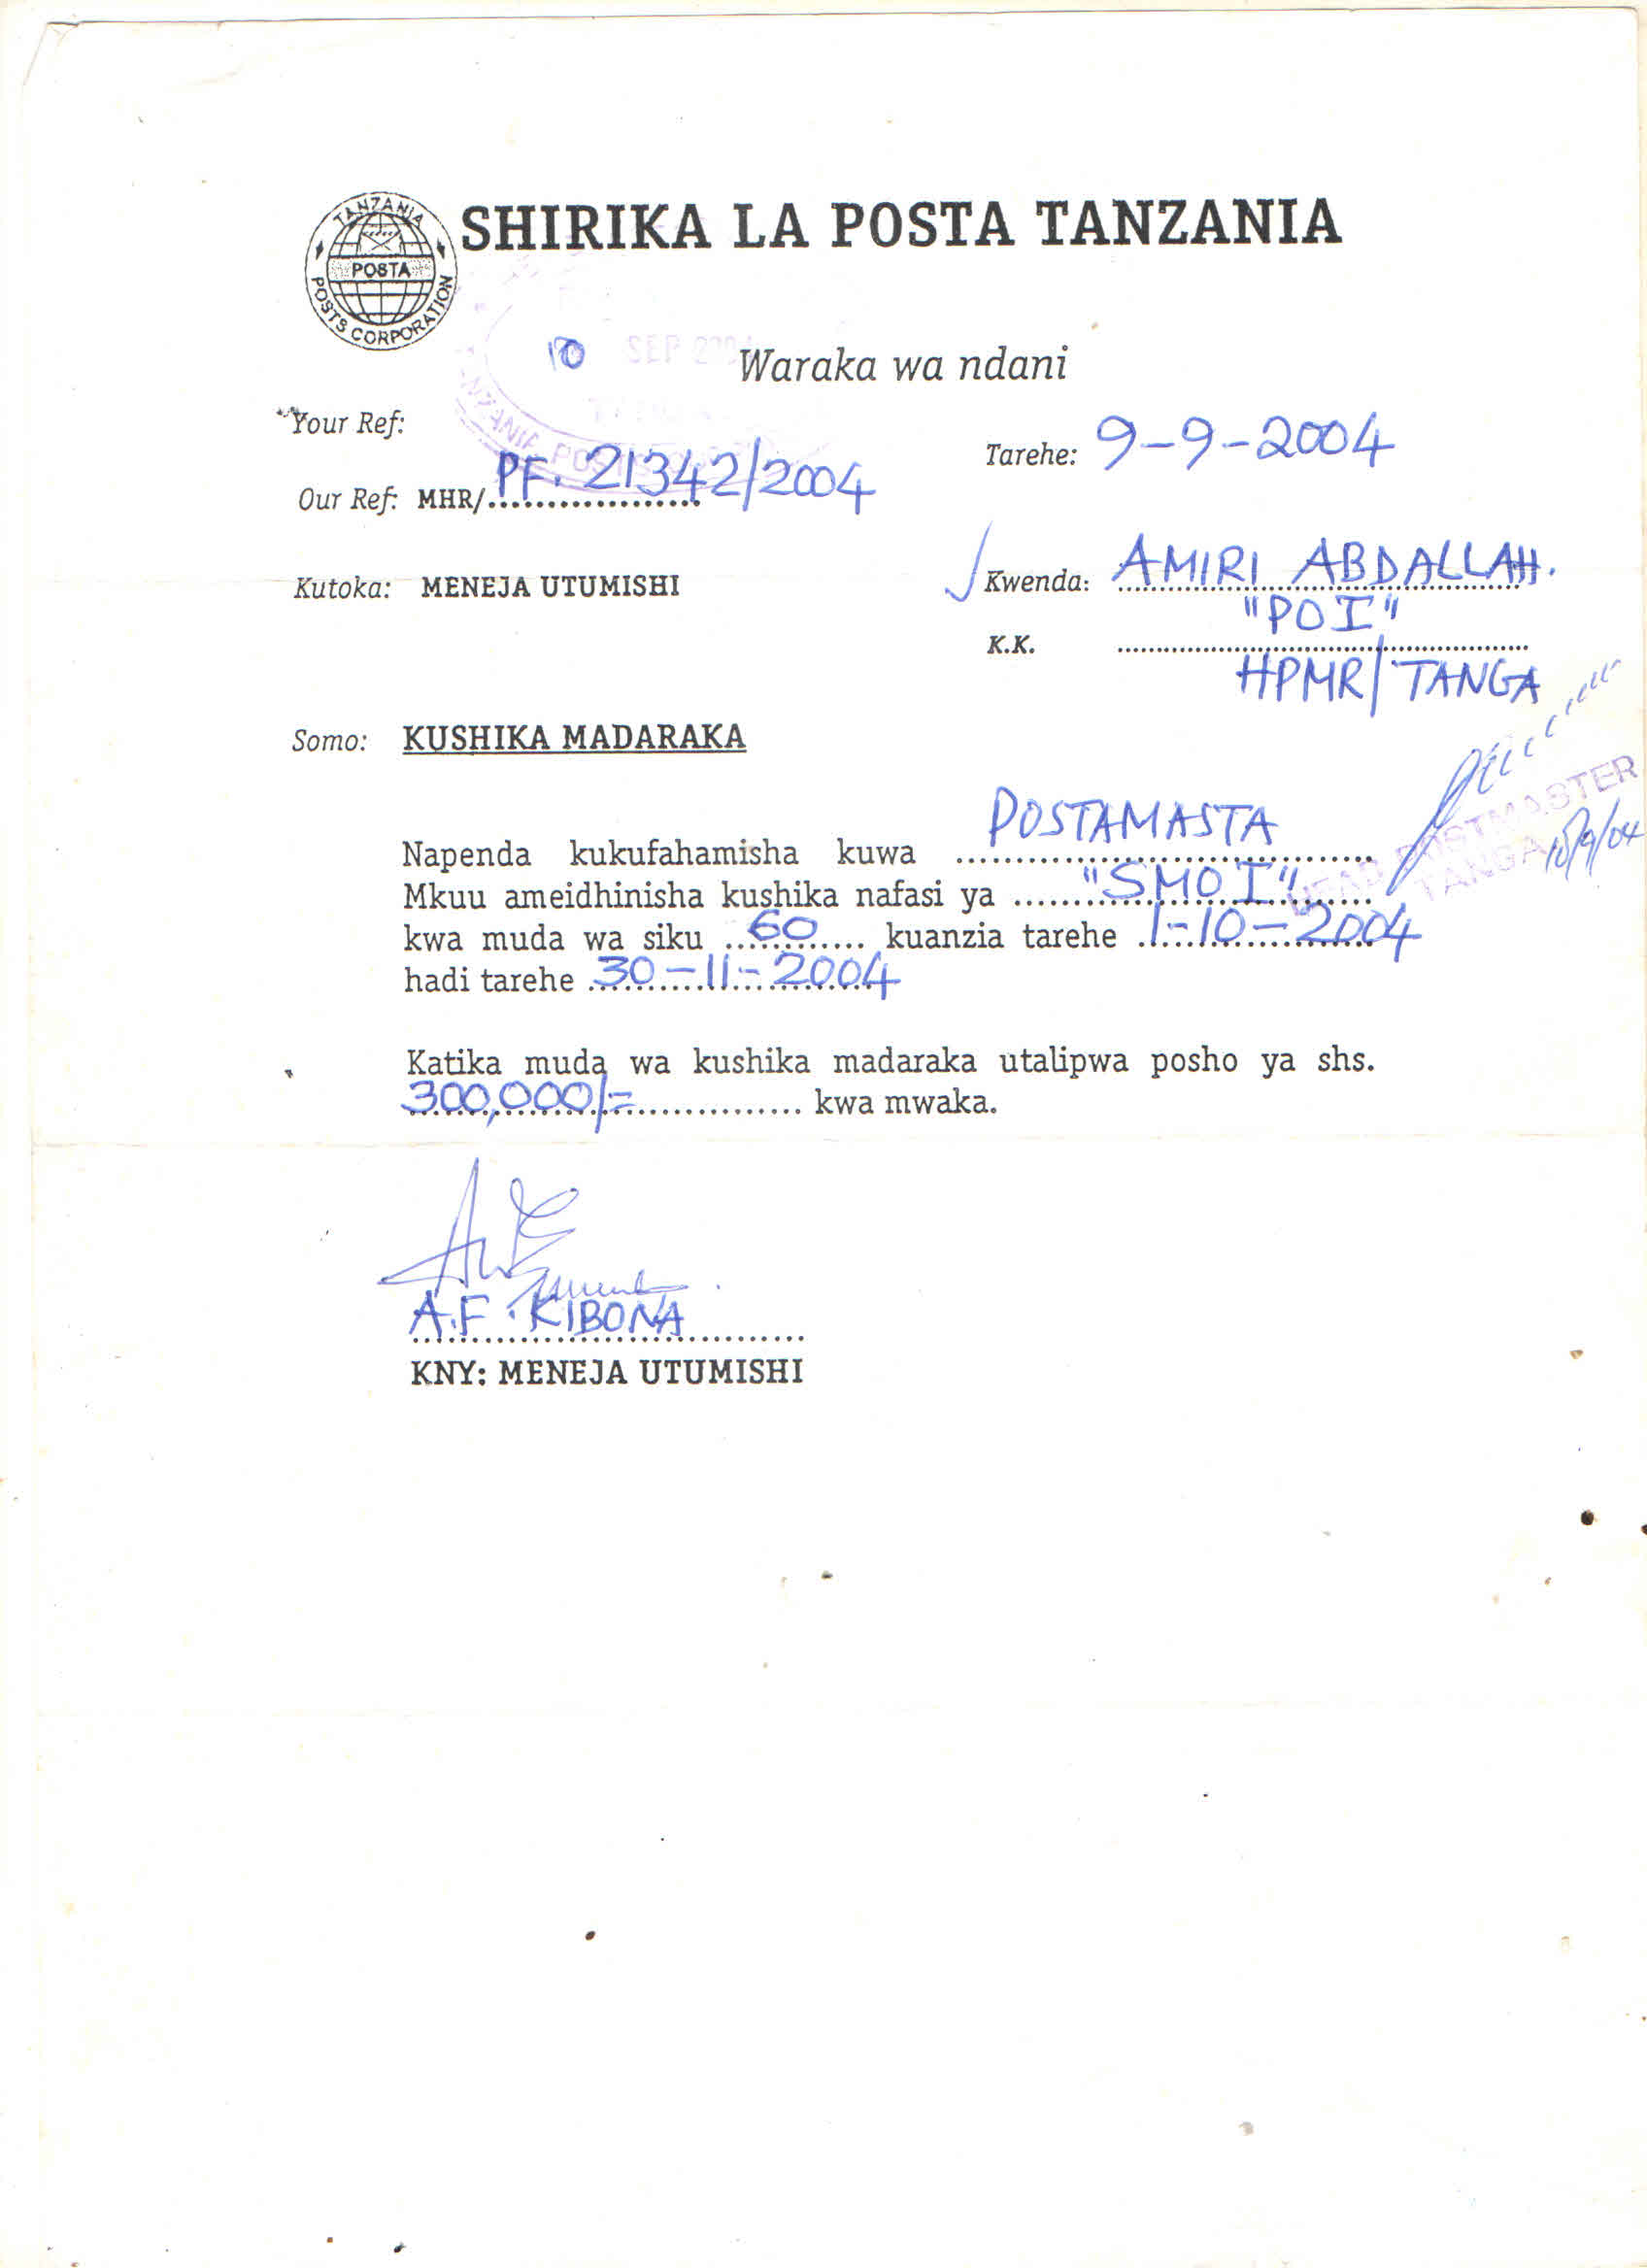 TANZANIA
POSTA
POSTS CORPORATION
SHIRIKA LA POSTA TANZANIA
10 SEP 2004
Waraka wa ndani
Your Ref:
Tarehe: 9-9-2004
Our Ref: MHR/ PF. 21342/2004
Kutoka: MENEJA UTUMISHI
Kwenda: AMIRI ABDALLAH.
"PO I"
K.K.
HPMR/TANGA
Somo: KUSHIKA MADARAKA
HEAD POSTMASTER
TANGA
10/9/04
Napenda kukufahamisha kuwa POSTAMASTA
Mkuu ameidhinisha kushika nafasi ya "SMO I"
kwa muda wa siku 60 kuanzia tarehe 1-10-2004
hadi tarehe 30-11-2004
Katika muda wa kushika madaraka utalipwa posho ya shs.
300,000/= kwa mwaka.
A.F. KIBONA
KNY: MENEJA UTUMISHI